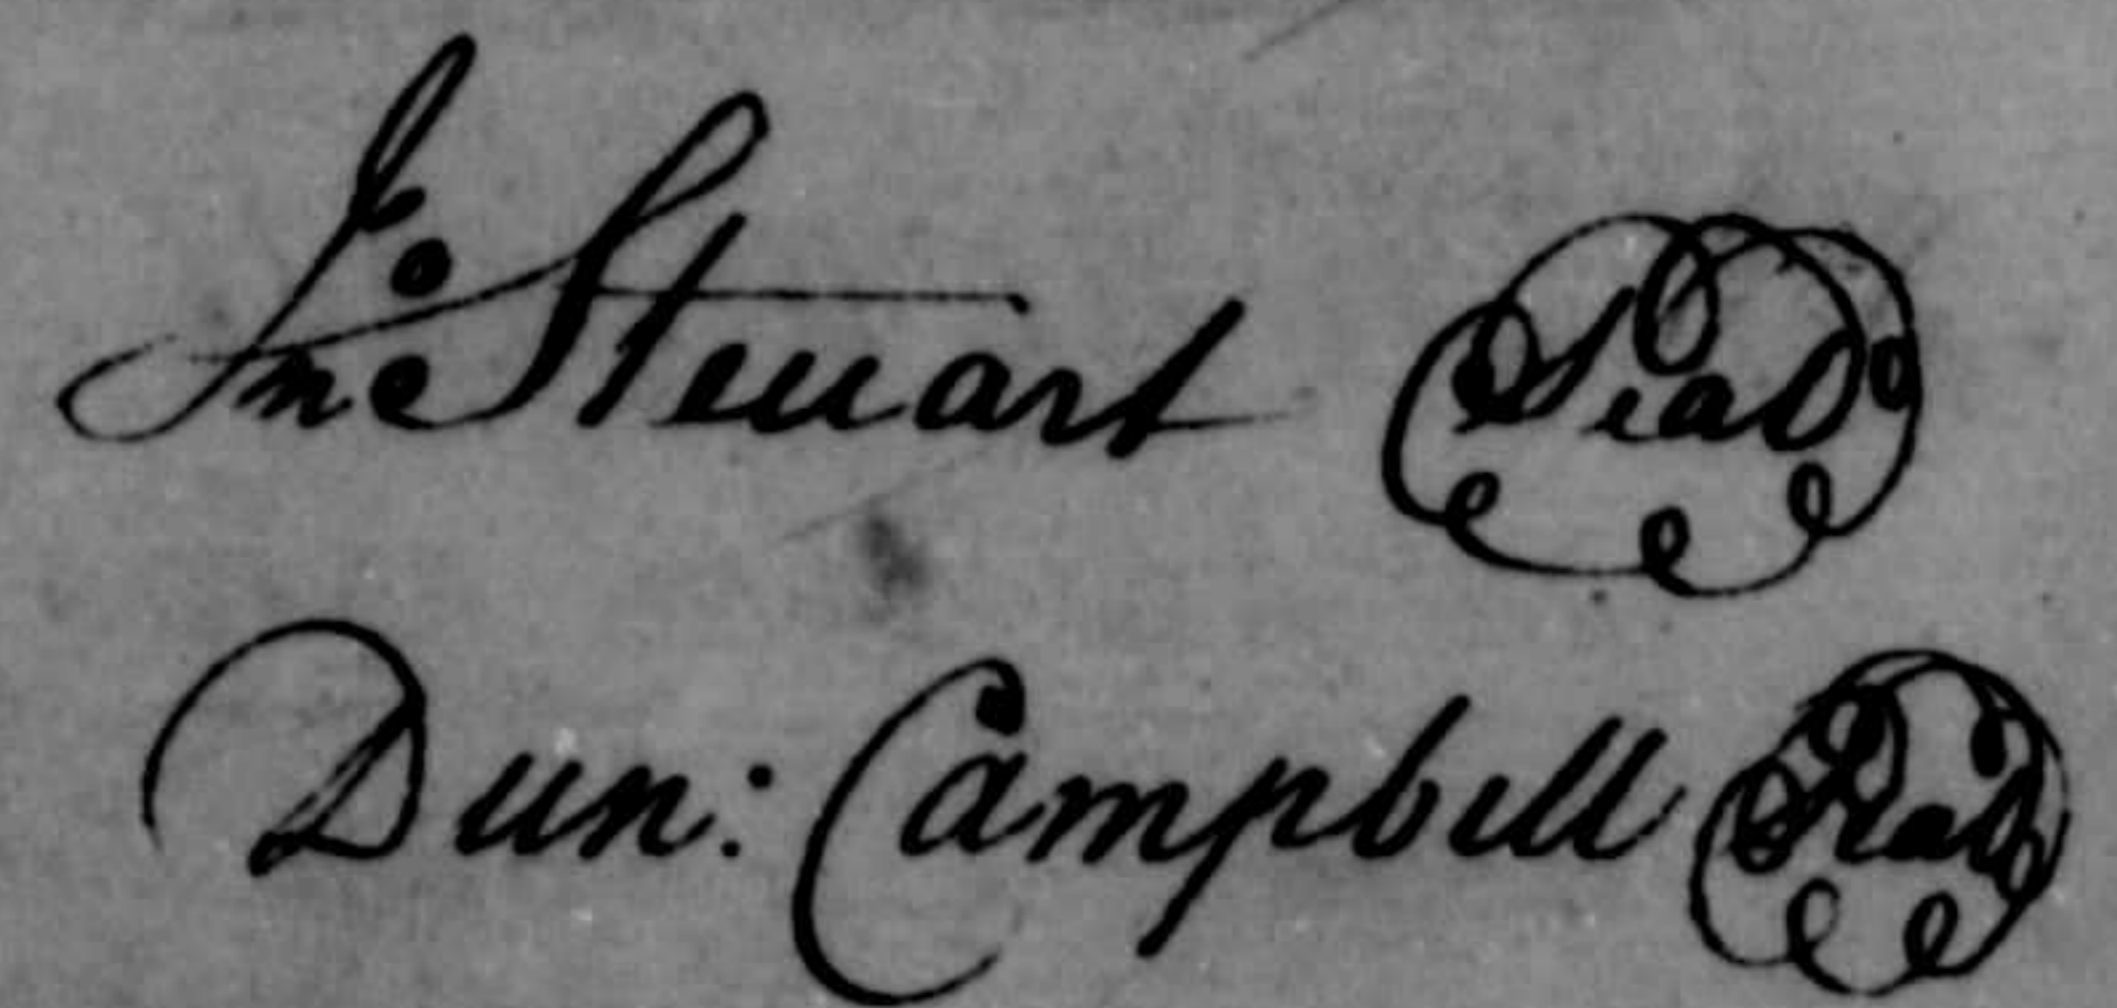 Jno Steuart Seal
Dun: Campbell Seal